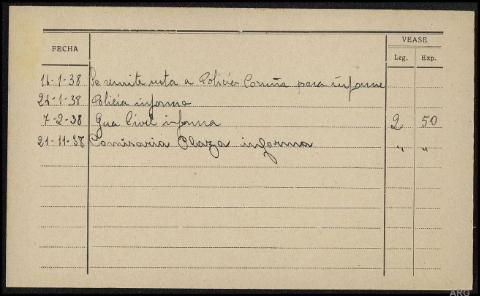 VEASE
FECHA
Leg. Exp.
14-1-38 Se remite nota a Policía Coruña para informe
24-1-38 Policia informa
7-2-38 Gua Civil informa 2 50
21-11-38 Comisaria Plaza informa " "
ARG